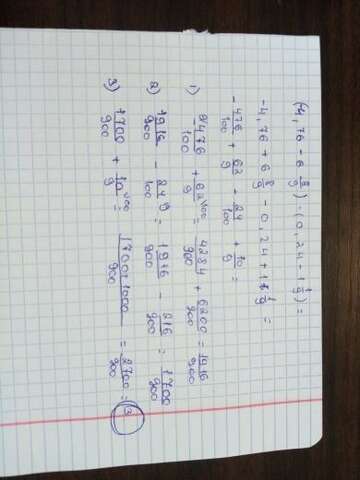 -(4,76 - 6 8/9) - (0,24 - 1 1/9) =
-4,76 + 6 8/9 - 0,24 + 1 1/9 =
-476/100 + 62/9 - 24/100 + 10/9 =
1) -476/100 + 62/9 = 4284/900 + 6200/900 = 1916/900
2) 1916/900 - 24/100 = 1916/900 - 216/900 = 1700/900
3) 1700/900 + 10/9 = 1700+1000/900 = 2700/900 = 3